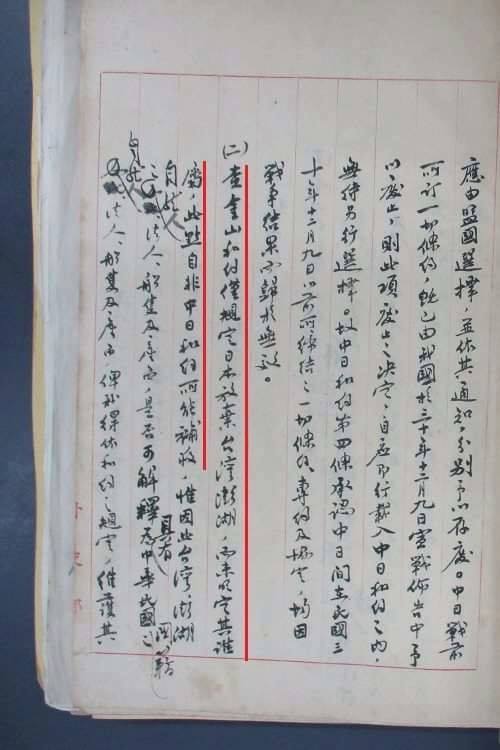 應由盟國選擇,並依其通知,分別予以存廢。中日戰前
所訂一切條約,既已由我國於三十年十二月九日宣戰佈告中予
以廢止,則此項廢止之決定,自應即行載入中日和約之內,
無待另行選擇。故中日和約第四條承認中日間在民國三
十年十二月九日以前所締結之一切條約、專約及協定,均因
戰爭結果而歸於無效。
(二)查金山和約僅規定日本放棄台灣澎湖,而未明定其誰
屬,此點自非中日和約所能補救,惟因此台灣澎湖
之自然人、法人、船隻及產品,是否可解釋為具有中華民國國籍之
自然人、法人、船隻及產品,俾能依和約之規定,維護其
外交部